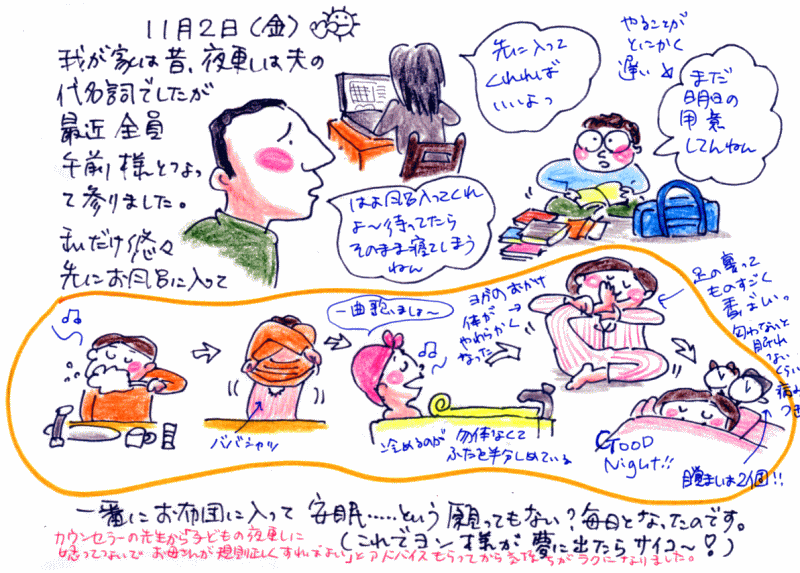 11月2日(金)
我が家は昔、夜更しは夫の
代名詞でしたが
最近 全員
午前様となっ
て参りました。
私だけ悠々
先にお風呂に入って
先に入って
くれれば
いいよっ
やることが
とにかく
遅い
まだ
明日の
用意
してんねん
はよ風呂入ってくれ
よ〜待ってたら
そのまま寝てしまう
ねん
ババシャツ
一曲歌いましょ〜
冷めるのが
勿体なくて
ふたを半分しめている
ヨガのおかげ
体が
やわらかく
なった
足の裏って
ものすごく
香ばしいっ
匂わないと
眠れ
ないくらい
病み
つき
GOOD
Night!!
目覚ましは2個!!
一番にお布団に入って 安眠……という願ってもない?毎日となったのです。
(これでヨン様が夢に出たらサイコ〜♡)
カウンセラーの先生から「子どもの夜更しに
つきあわないで お母さんが規則正しくすればよい」とアドバイスもらってから気持ちがラクになりました。